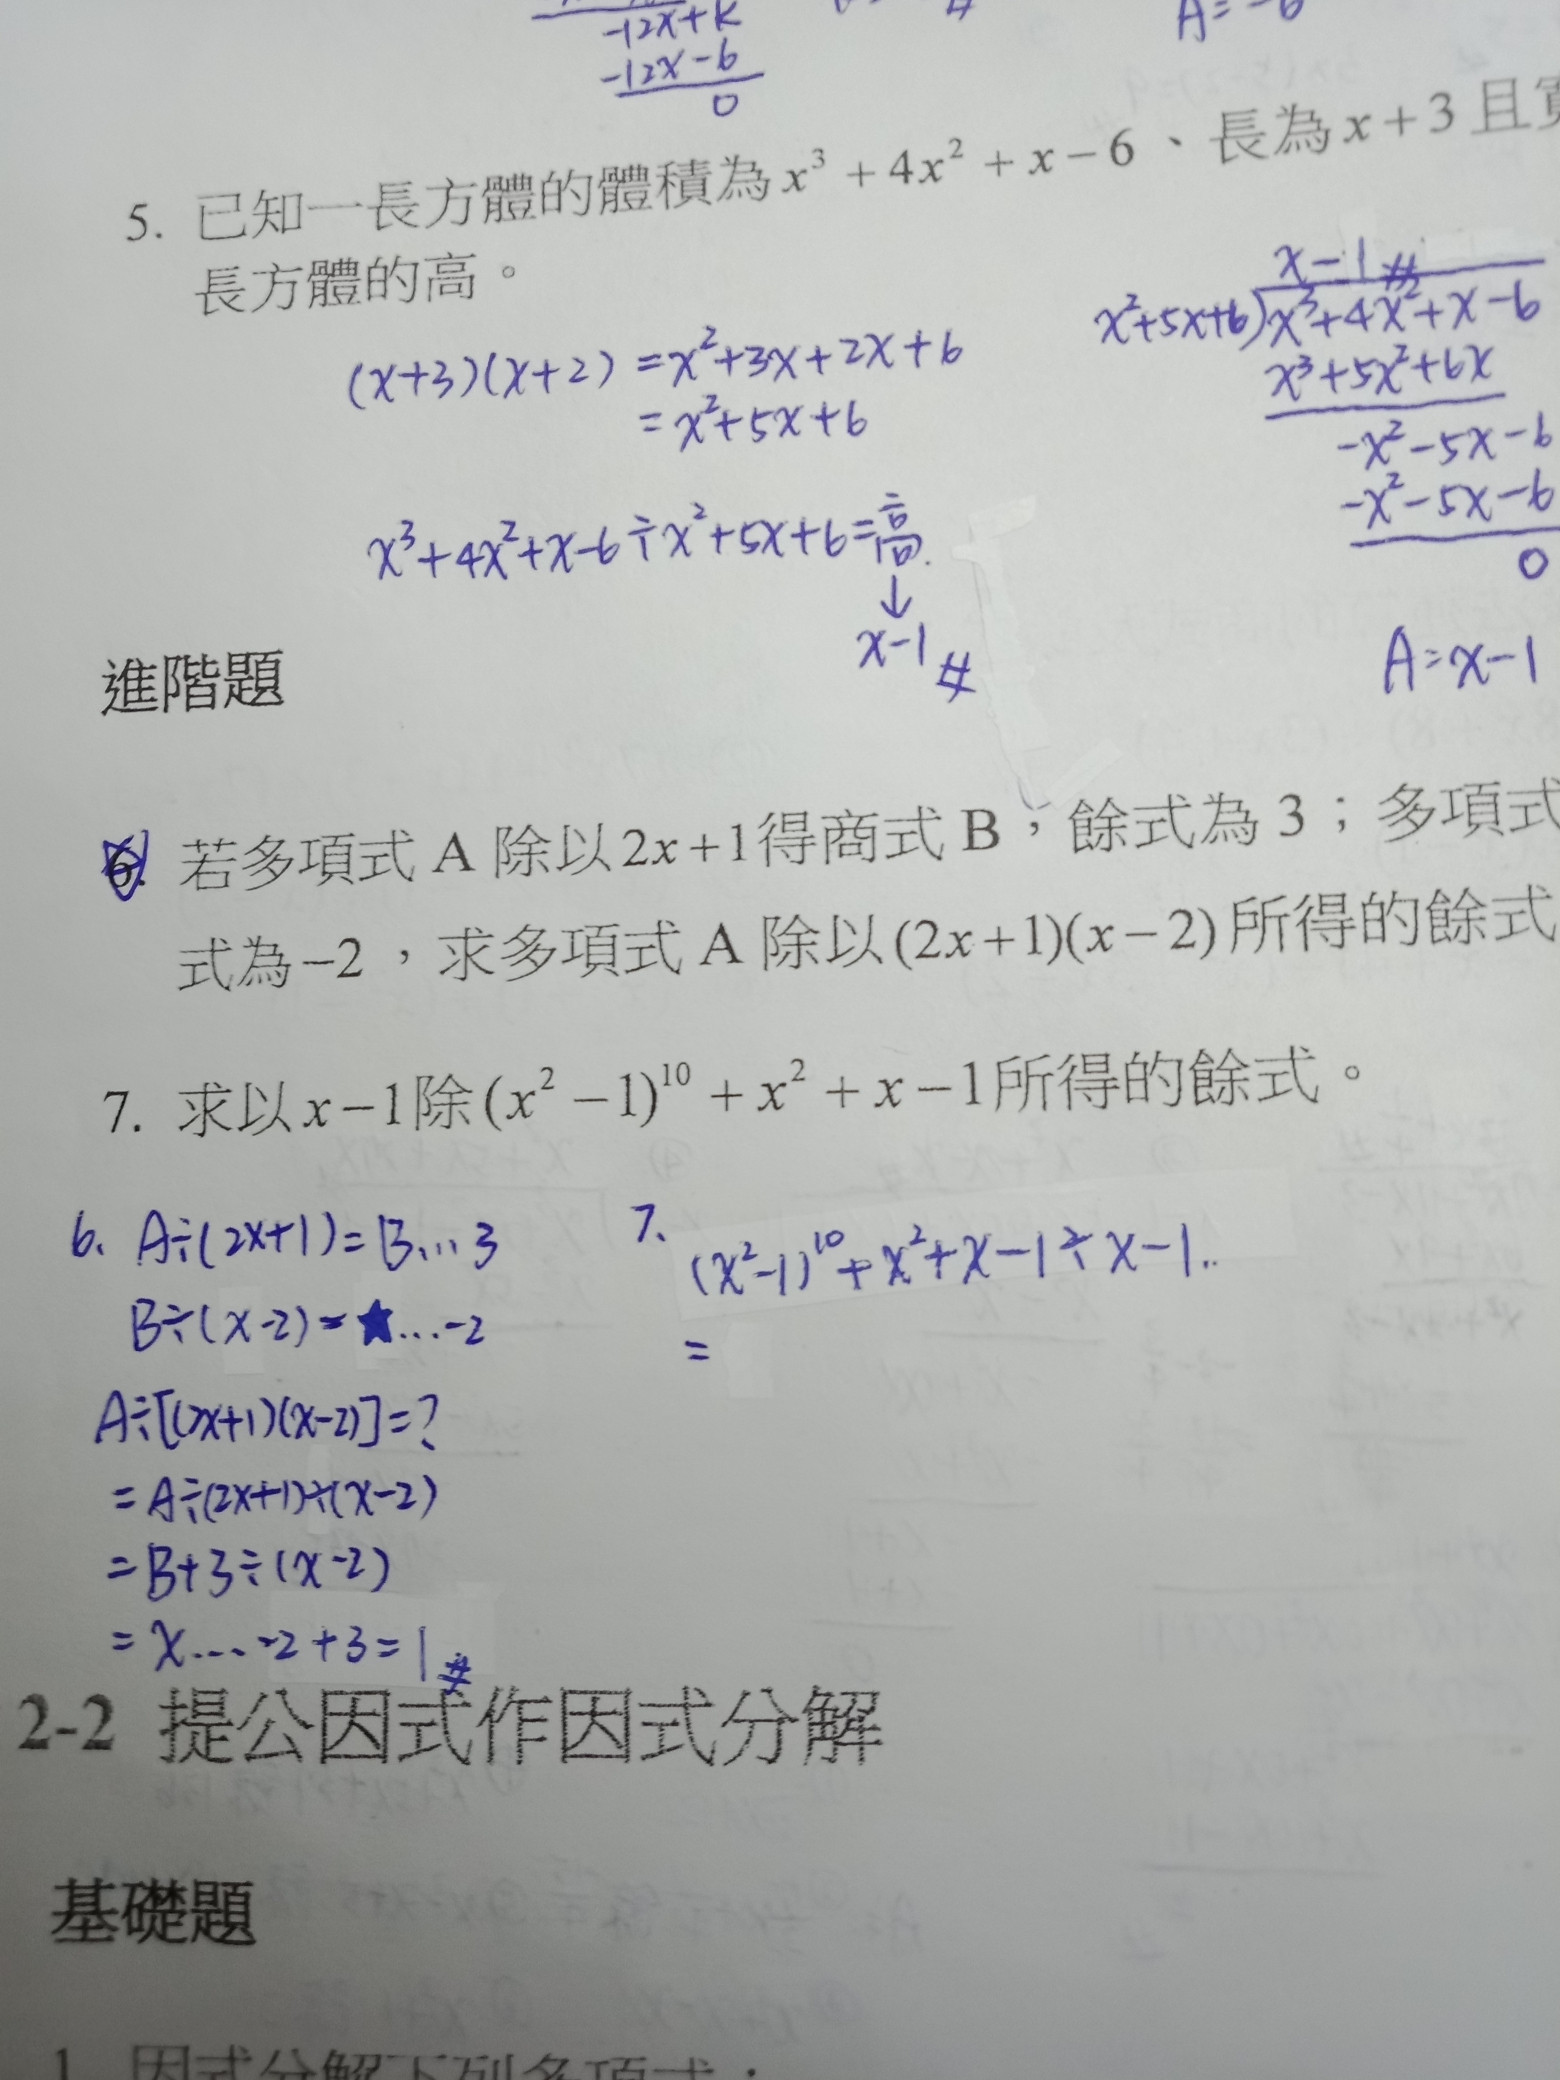 -12x+k
-12x-6
0
A=-6
5. 已知一長方體的體積為 x³ + 4x² + x − 6 、長為 x + 3 且寬
長方體的高。
(x+3)(x+2) = x²+3x+2x+6
= x²+5x+6
x³+4x²+x-6÷x²+5x+6=高.
↓
x-1 #
x-1 #
x²+5x+6)x³+4x²+x-6
x³+5x²+6x
-x²-5x-6
-x²-5x-6
0
A=x-1
進階題
6. 若多項式 A 除以 2x+1 得商式 B，餘式為 3；多項式
式為 −2 ，求多項式 A 除以 (2x+1)(x−2) 所得的餘式
7. 求以 x−1 除 (x² −1)¹⁰ + x² + x −1 所得的餘式。
6. A÷(2x+1)=B...3
B÷(x-2)=★...-2
A÷[(2x+1)(x-2)]=?
=A÷(2x+1)÷(x-2)
=B+3÷(x-2)
=x....-2+3=1 #
7. (x²-1)¹⁰+x²+x-1÷x-1..
=
2-2 提公因式作因式分解
基礎題
1. 因式分解下列多項式：